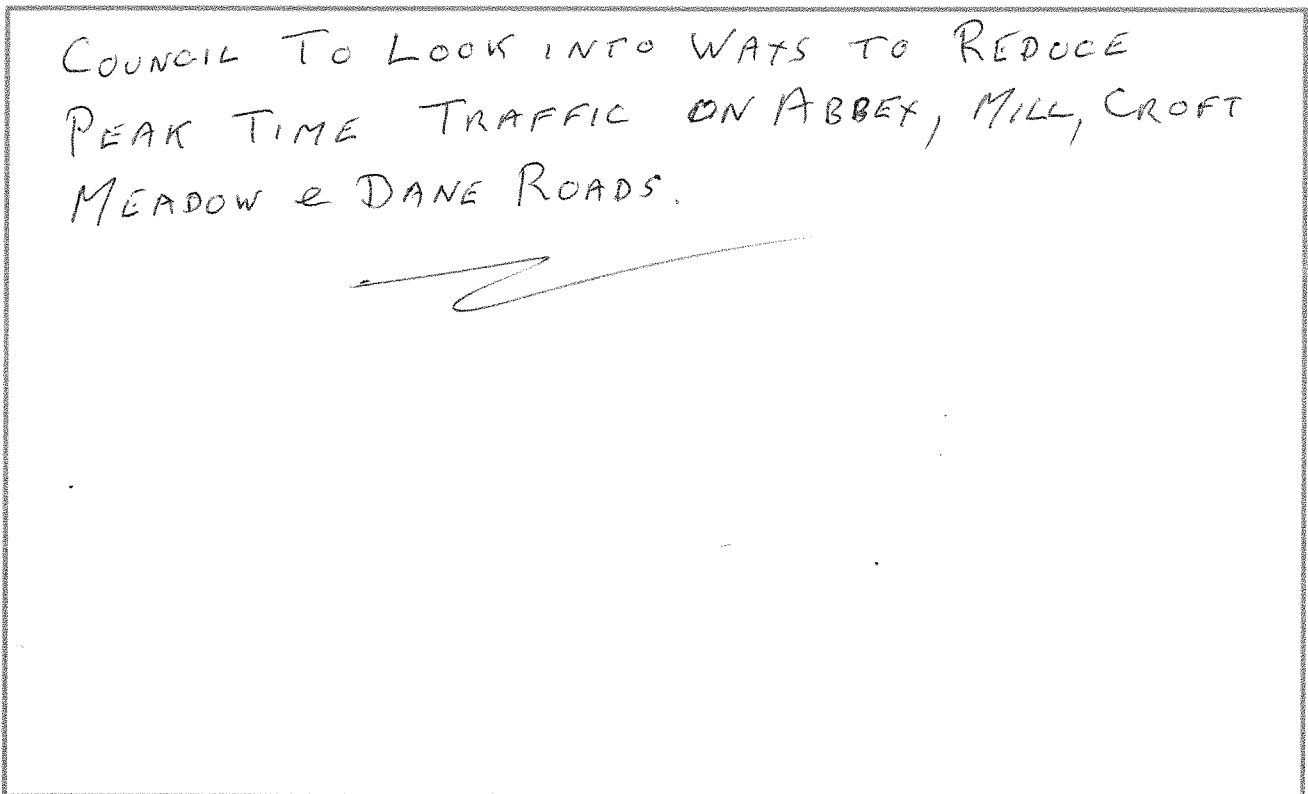 COUNCIL TO LOOK INTO WAYS TO REDUCE
PEAK TIME TRAFFIC ON ABBEY, MILL, CROFT
MEADOW & DANE ROADS.